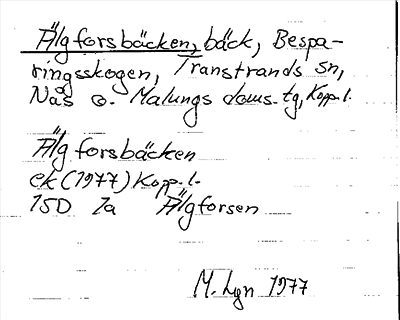 Älgforsbäcken, bäck, Bespa-
ringsskogen, Transtrands sn,
Nås o. Malungs doms. tg, Kopp. l.
Älgforsbäcken
ek (1977) Kopp. l.
15D 2a Älgforsen
M. Lyn 1977